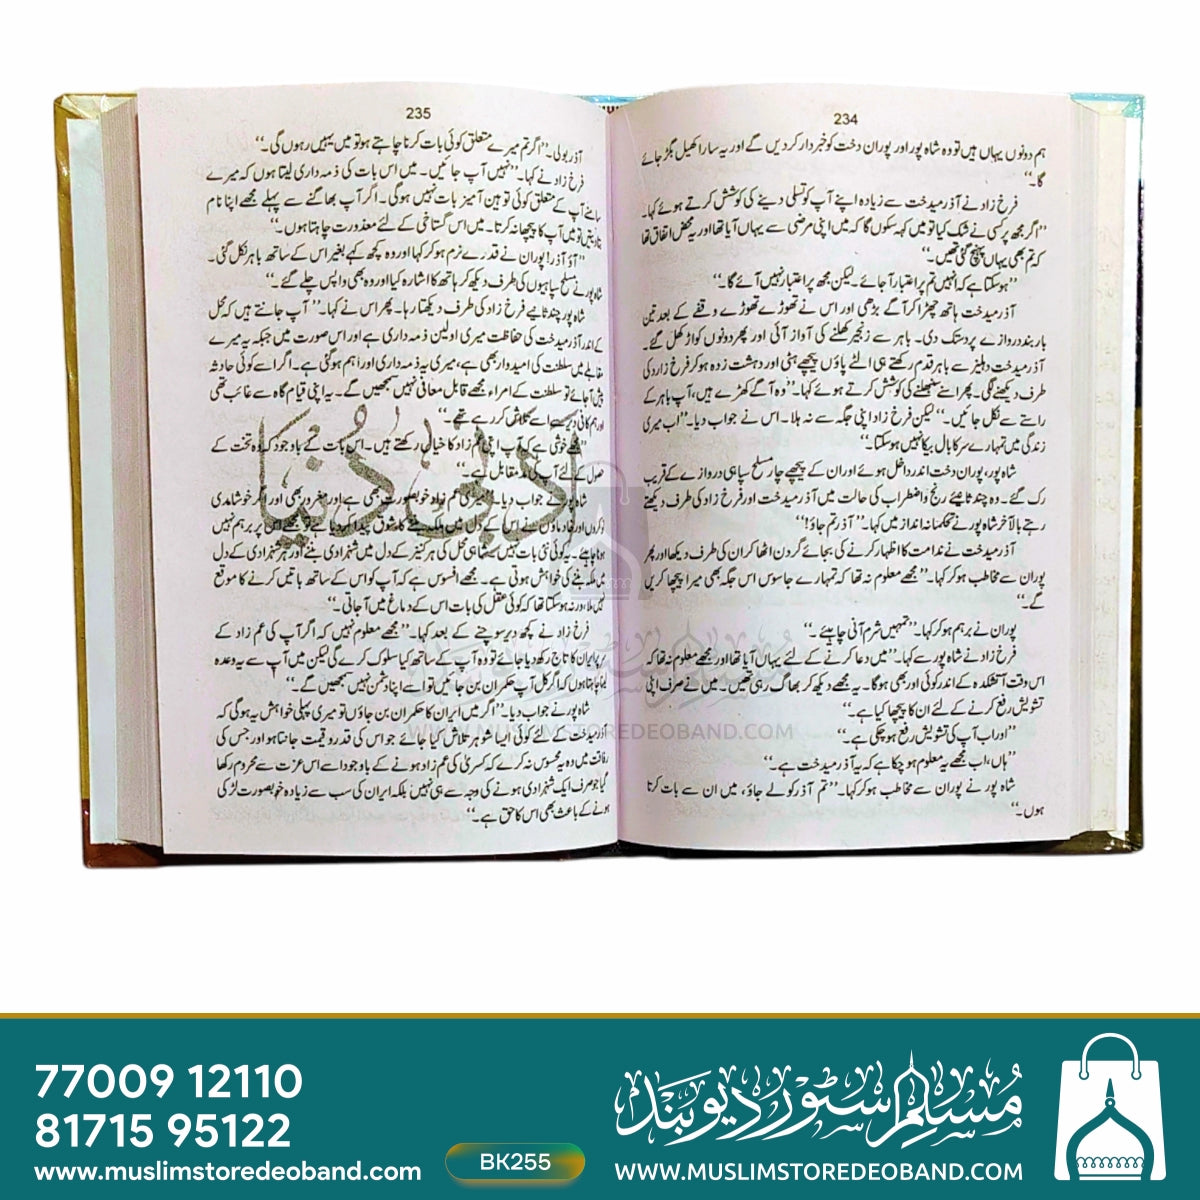 234
ہم دونوں یہاں ہیں تو وہ شاہ پور اور پوران دخت کو خبردار کر دیں گے اور یہ سارا کھیل بگڑ جائے
گا۔‘‘
فرخ زاد نے آذرمیدخت سے زیادہ اپنے آپ کو تسلی دینے کی کوشش کرتے ہوئے کہا۔
’’اگر مجھ پر کسی نے شک کیا تو میں کہہ سکوں گا کہ میں اپنی مرضی سے یہاں آیا تھا اور یہ محض اتفاق تھا
کہ تم بھی یہاں پہنچ گئی تھیں۔‘‘
’’ہوسکتا ہے کہ انہیں تم پر اعتبار آ جائے۔ لیکن مجھ پر اعتبار نہیں آئے گا۔‘‘
آذرمیدخت ہاتھ چھڑا کر آگے بڑھی اور اس نے تھوڑے تھوڑے وقفے کے بعد تین
بار بند دروازے پر دستک دی۔ باہر سے زنجیر کھلنے کی آواز آئی اور پھر دونوں کواڑ کھل گئے۔
آذرمیدخت دہلیز سے باہر قدم رکھتے ہی الٹے پاؤں پیچھے ہٹی اور دہشت زدہ ہو کر فرخ زاد کی
طرف دیکھنے لگی۔ پھر اسنے سنبھلنے کی کوشش کرتے ہوئے کہا۔ ’’وہ آ گے کھڑے ہیں، آپ باہر کے
راستے سے نکل جائیں۔‘‘ لیکن فرخ زاد اپنی جگہ سے نہ ہلا۔ اس نے جواب دیا۔ ’’اب میری
زندگی میں تمہارے سر کا بال بیکا نہیں ہوسکتا۔‘‘
شاہ پور، پوران دخت اندر داخل ہوئے اور ان کے پیچھے چار مسلح سپاہی دروازے کے قریب
رک گئے۔ وہ چند ثانیے رنج و اضطراب کی حالت میں آذرمیدخت اور فرخ زاد کی طرف دیکھتے
رہے بالآخر شاہ پور نے تحکمانہ انداز میں کہا۔ ’’آذر تم جاؤ!‘‘
آذرمیدخت نے ندامت کا اظہار کرنے کی بجائے گردن اٹھا کر ان کی طرف دیکھا اور پھر
پوران سے مخاطب ہو کر کہا۔ ’’مجھے معلوم نہ تھا کہ تمہارے جاسوس اس جگہ بھی میرا پیچھا کریں
گے۔‘‘
پوران نے برہم ہو کر کہا۔ ’’تمہیں شرم آنی چاہیئے۔‘‘
فرخ زاد نے شاہ پور سے کہا۔ ’’میں دعا کرنے کے لئے یہاں آیا تھا اور مجھے معلوم نہ تھا کہ
اس وقت آتشکدہ کے اندر کوئی اور بھی ہوگا۔ یہ مجھے دیکھ کر بھاگ رہی تھیں۔ میں نے صرف اپنی
تشویش رفع کرنے کے لئے ان کا پیچھا کیا ہے۔‘‘
’’اور اب آپ کی تشویش رفع ہو چکی ہے۔‘‘
’’ہاں، اب مجھے یہ معلوم ہو چکا ہے کہ یہ آذرمیدخت ہے۔‘‘
شاہ پور نے پوران سے مخاطب ہو کر کہا۔ ’’تم آذر کو لے جاؤ، میں ان سے بات کرتا
ہوں۔‘‘
235
آذر بولی۔ ’’اگر تم میرے متعلق کوئی بات کرنا چاہتے ہو تو میں یہیں رہوں گی۔‘‘
فرخ زاد نے کہا۔ ’’نہیں آپ جائیں۔ میں اس بات کی ذمہ داری لیتا ہوں کہ میرے
سامنے آپ کے متعلق کوئی توہین آمیز بات نہیں ہوگی۔ اگر آپ بھاگنے سے پہلے مجھے اپنا نام
بتا دیتیں تو میں آپ کا پیچھا نہ کرتا۔ میں اس گستاخی کے لئے معذرت چاہتا ہوں۔‘‘
’’آؤ آذر! پوران نے قدرے نرم ہو کر کہا اور وہ کچھ کہے بغیر اس کے ساتھ باہر نکل گئی۔
شاہ پور نے مسلح سپاہیوں کی طرف دیکھ کر ہاتھ کا اشارہ کیا اور وہ بھی واپس چلے گئے۔‘‘
شاہ پور چند ثانیے فرخ زاد کی طرف دیکھتا رہا۔ پھر اس نے کہا۔ ’’آپ جانتے ہیں کہ محل
کے اندر آذرمیدخت کی حفاظت میری اولین ذمہ داری ہے اور اس صورت میں جبکہ یہ میرے
مقابلے میں سلطنت کی امیدوار بھی ہے، میری یہ ذمہ داری اور اہم ہوگئی ہے۔ اگر اسے کوئی حادثہ
پیش آ جائے تو سلطنت کے امراء مجھے قابل معافی نہیں سمجھیں گے۔ یہ اپنی قیام گاہ سے غائب تھی
اور ہم کافی دیر سے اسے تلاش کر رہے تھے۔‘‘
’’مجھے خوشی ہے کہ آپ اپنی عم زاد کا خیال رکھتے ہیں۔ اس بات کے باوجود کہ وہ تخت کے
حصول کے لئے آپ کی مدمقابل ہے۔‘‘
شاہ پور نے جواب دیا۔ ’’میری عم زاد خوبصورت بھی ہے اور مغرور بھی اور اگر خوشامدی
نوکروں اور خادماؤں نے اس کے دل میں ملکہ بننے کا شوق پیدا کر دیا ہے تو مجھے اس پر برہم نہیں
ہونا چاہیئے۔ یہ کوئی نئی بات نہیں ہے شاہی محل کی ہر کنیز کے دل میں شہزادی بننے اور ہر شہزادی کے دل
میں ملکہ بننے کی خواہش ہوتی ہے۔ مجھے افسوس ہے کہ آپ کو اس کے ساتھ باتیں کرنے کا موقع
نہیں ملا ورنہ ہوسکتا تھا کہ کوئی عقل کی بات اس کے دماغ میں آ جاتی۔‘‘
فرخ زاد نے کچھ دیر سوچنے کے بعد کہا۔ ’’مجھے معلوم نہیں کہ اگر آپ کی عم زاد کے
سر پر ایران کا تاج رکھ دیا جائے تو وہ آپ کے ساتھ کیا سلوک کرے گی لیکن میں آپ سے یہ وعدہ
لینا چاہتا ہوں کہ اگر کل آپ حکمران بن جائیں تو اسے اپنا دشمن نہیں سمجھیں گے۔‘‘
شاہ پور نے جواب دیا۔ ’’اگر میں ایران کا حکمران بن جاؤں تو میری پہلی خواہش یہ ہوگی کہ
آذرمیدخت کے لئے کوئی ایسا شوہر تلاش کیا جائے جو اس کی قدر و قیمت جانتا ہو اور جس کی
رفاقت میں وہ یہ محسوس نہ کرے کہ کسریٰ کی عم زاد ہونے کے باوجود اسے اس عزت سے محروم رکھا
گیا جو صرف ایک شہزادی ہونے کی وجہ سے ہی نہیں بلکہ ایران کی سب سے زیادہ خوبصورت لڑکی
ہونے کے باعث بھی اس کا حق ہے۔‘‘
ادبی دُنیا
مُسلِم سٹور دیوبند
WWW.MUSLIMSTOREDEOBAND.COM
77009 12110
81715 95122
www.muslimstoredeoband.com
BK255
مُسلِم سٹور دیوبند
WWW.MUSLIMSTOREDEOBAND.COM